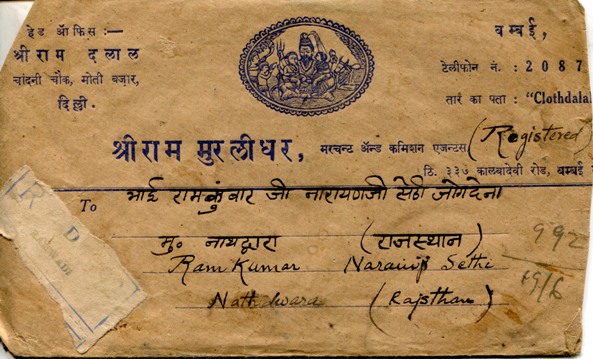 हेड ऑफिस :—
श्रीराम दलाल
चांदनी चौक, मोती बजार,
दिल्ली.
बम्बई,
टेलीफोन नं. : 2087
तारं का पता : "Clothdalal
श्रीराम मुरलीधर, मरचन्ट ॲन्ड कमिशन एजन्टस
(Registered)
ठि. ३३७ कालबादेवी रोड, बम्बई
R D
To भाई रामकुंवार जी नारायणजी सेठी जोगदेना
मु. नाथद्वारा (राजस्थान)
992
Ram Kumar Narainji Sethi
Nathdwara (Rajsthan)